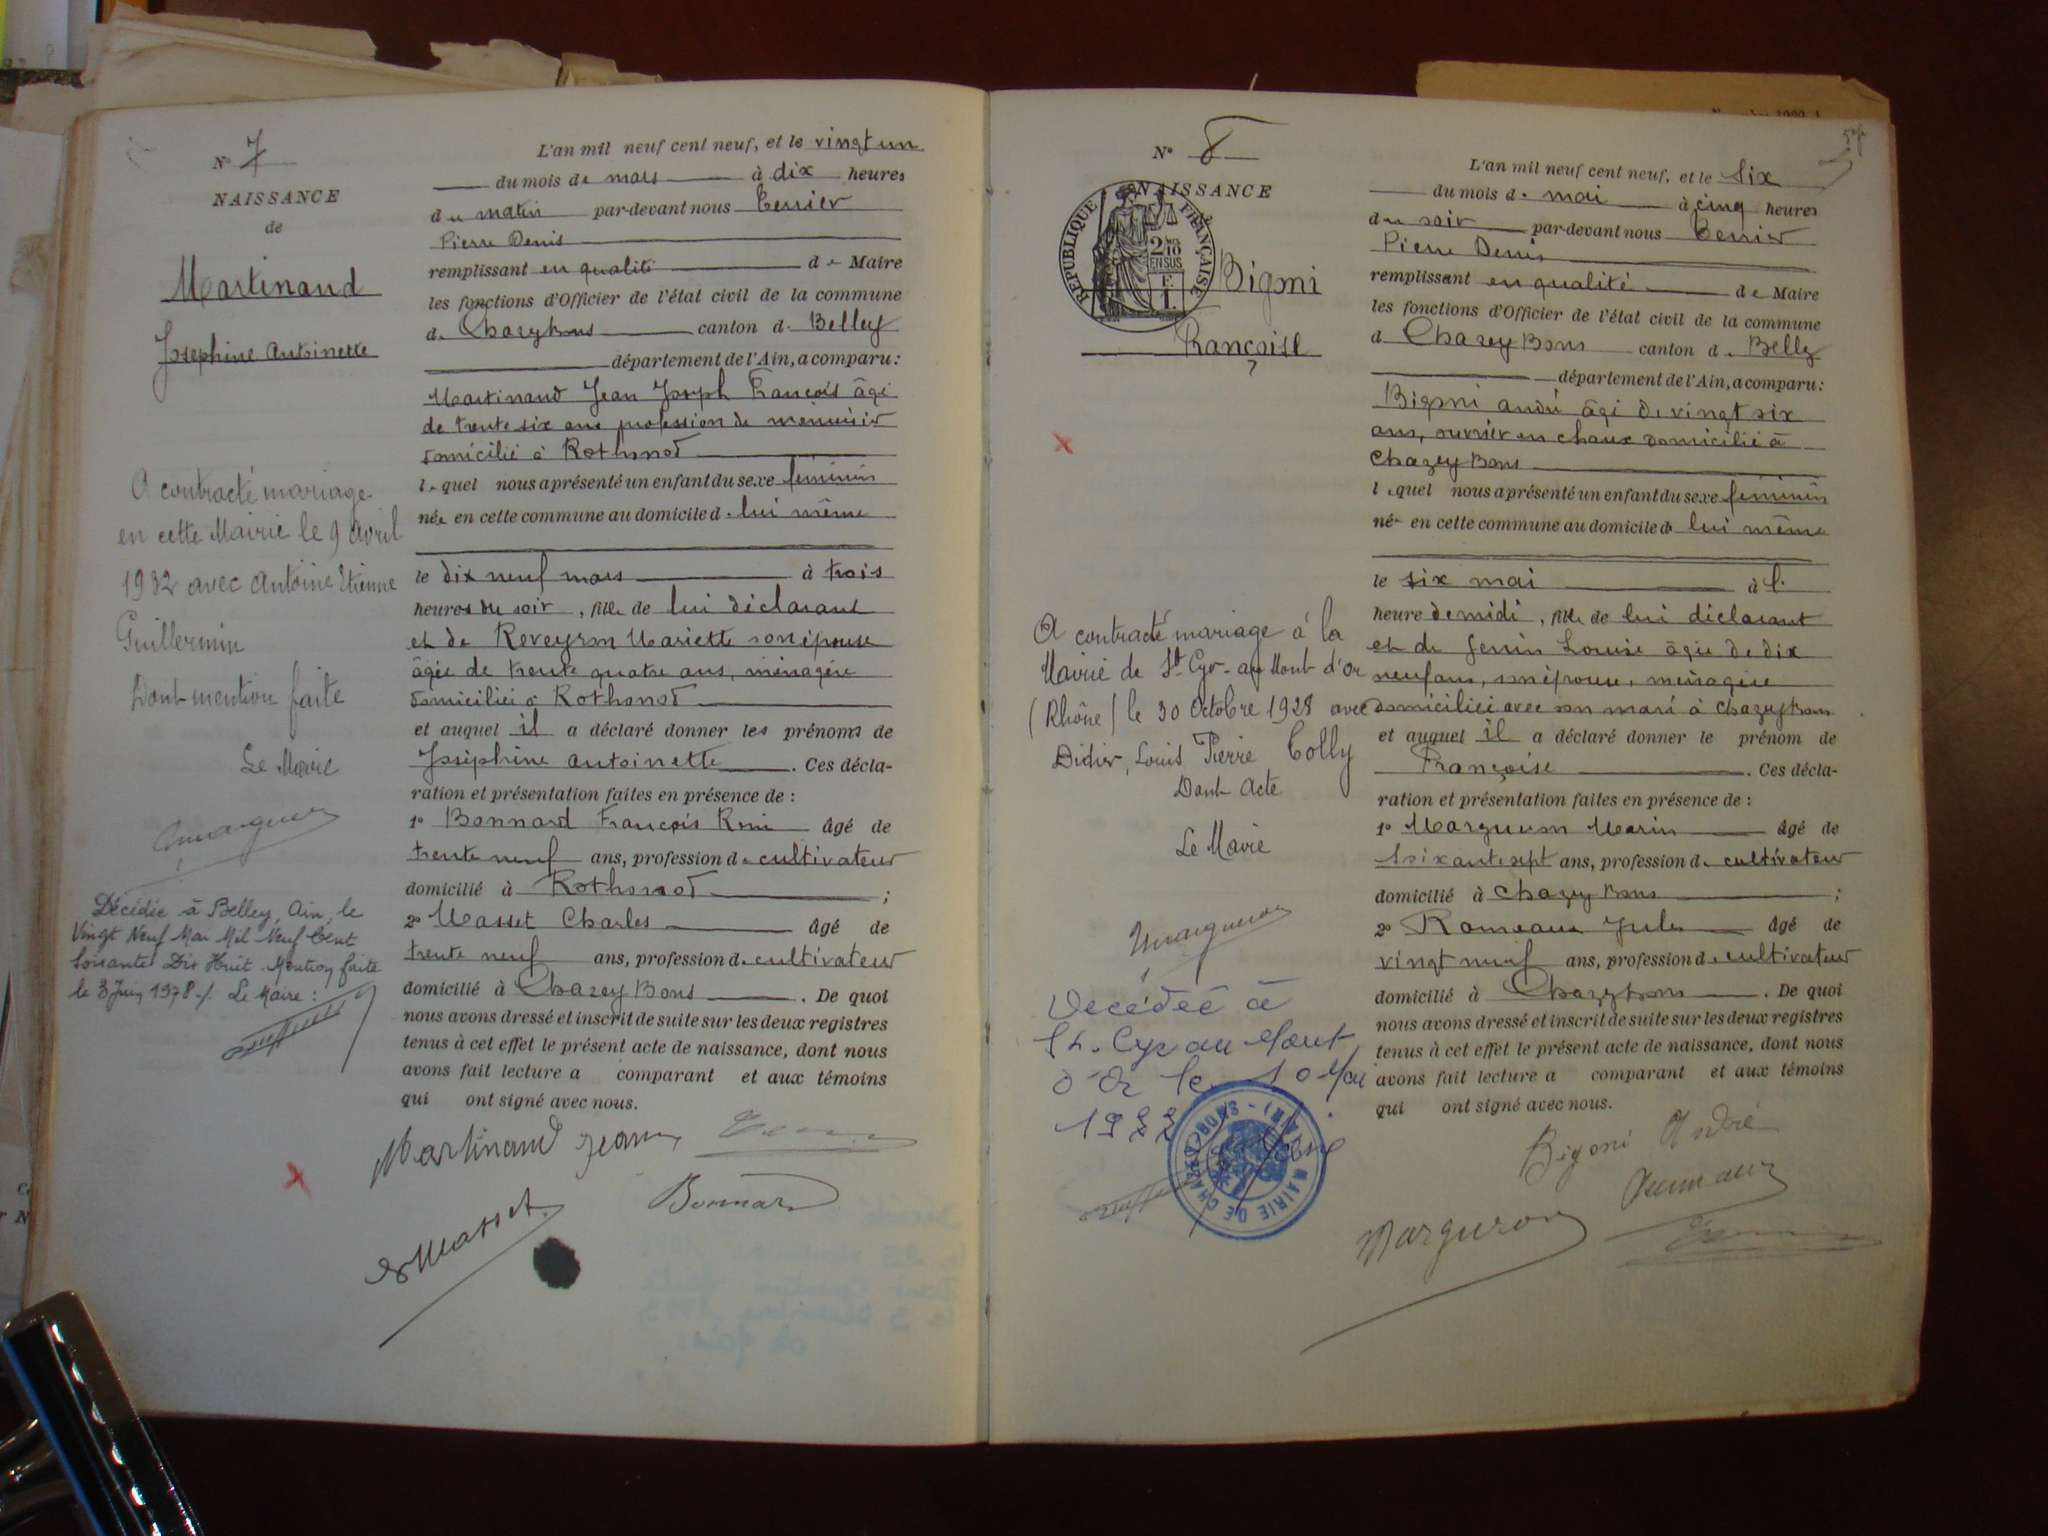 N° 7
NAISSANCE
de
Martinand
Joséphine Antoinette
A contracté mariage
en cette Mairie le 9 avril
1932 avec Antoine Etienne
Guillermin
Dont mention faite
Le Maire
Décédée à Belley, Ain, le
Vingt Neuf Mai Mil Neuf Cent
Soixante Dix Huit. Mention faite
le 3 Juin 1978./. Le Maire :
L'an mil neuf cent neuf, et le vingt un
du mois de mars à dix heures
du matin par-devant nous Terrier
Pierre Denis
remplissant en qualité de Maire
les fonctions d'Officier de l'état civil de la commune
de Chazey Bons canton de Belley
département de l'Ain, a comparu :
Martinand Jean Joseph François âgé
de trente six ans profession de menuisier
domicilié à Rothonod
lequel nous a présenté un enfant du sexe féminin
née en cette commune au domicile de lui même
le dix neuf mars à trois
heures du soir, fille de lui déclarant
et de Reveyron Mariette son épouse
âgée de trente quatre ans, ménagère
domiciliée à Rothonod
et auquel il a déclaré donner les prénoms de
Joséphine Antoinette. Ces décla-
ration et présentation faites en présence de :
1° Bonnard François Réni âgé de
trente neuf ans, profession de cultivateur
domicilié à Rothonod ;
2° Masset Charles âgé de
trente neuf ans, profession de cultivateur
domicilié à Chazey Bons. De quoi
nous avons dressé et inscrit de suite sur les deux registres
tenus à cet effet le présent acte de naissance, dont nous
avons fait lecture a comparant et aux témoins
qui ont signé avec nous.
Martinand Jean
Bonnard
Masset
N° 8
NAISSANCE
REPUBLIQUE FRANÇAISE
2/10
EN SUS
F
1
Bigoni
Françoise
A contracté mariage à la
Mairie de St Cyr-au Mont d'Or
(Rhône) le 30 Octobre 1928 avec
Didier, Louis Pierre Colly
Dont acte
Le Maire
Margueron
Décédée à
St. Cyr au Mont
d'Or le 10 Mai
MAIRIE DE CHAZEY-BONS - (AIN)
L'an mil neuf cent neuf, et le six
du mois de mai à cinq heures
du soir par-devant nous Terrier
Pierre Denis
remplissant en qualité de Maire
les fonctions d'Officier de l'état civil de la commune
d Chazey Bons canton de Belley
département de l'Ain, a comparu :
Bigoni André âgé de vingt six
ans, ouvrier en chaux domicilié à
Chazey Bons
lequel nous a présenté un enfant du sexe féminin
née en cette commune au domicile de lui même
le six mai à l'
heure de midi, fille de lui déclarant
et de Louise âgée de dix
neuf ans, son épouse, ménagère
domiciliée avec son mari à Chazey Bons
et auquel il a déclaré donner le prénom de
Françoise. Ces décla-
ration et présentation faites en présence de :
1° Margueron Marin âgé de
soixante sept ans, profession de cultivateur
domicilié à Chazey Bons ;
2° Rameaux Jules âgé de
vingt neuf ans, profession de cultivateur
domicilié à Chazey Bons. De quoi
nous avons dressé et inscrit de suite sur les deux registres
tenus à cet effet le présent acte de naissance, dont nous
avons fait lecture a comparant et aux témoins
qui ont signé avec nous.
Bigoni André
Margueron